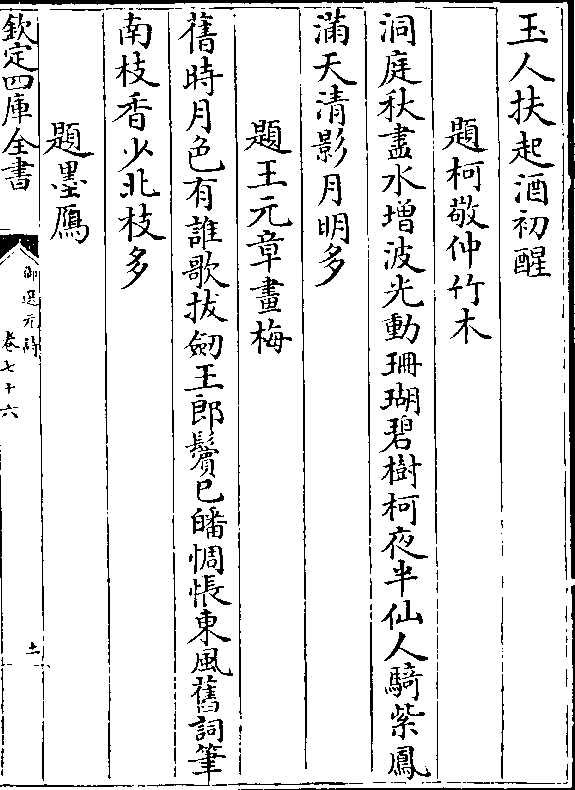 玉人扶起酒初醒
題柯敬仲竹木
洞庭秋盡水增波光動珊瑚碧樹柯夜半仙人騎紫鳳
滿天清影月明多
題王元章畫梅
舊時月色有誰歌拔劒王郎鬢已皤惆悵東風舊詞筆
南枝香少北枝多
題墨鴈
欽定四庫全書
御選元詩
卷七十六
十一